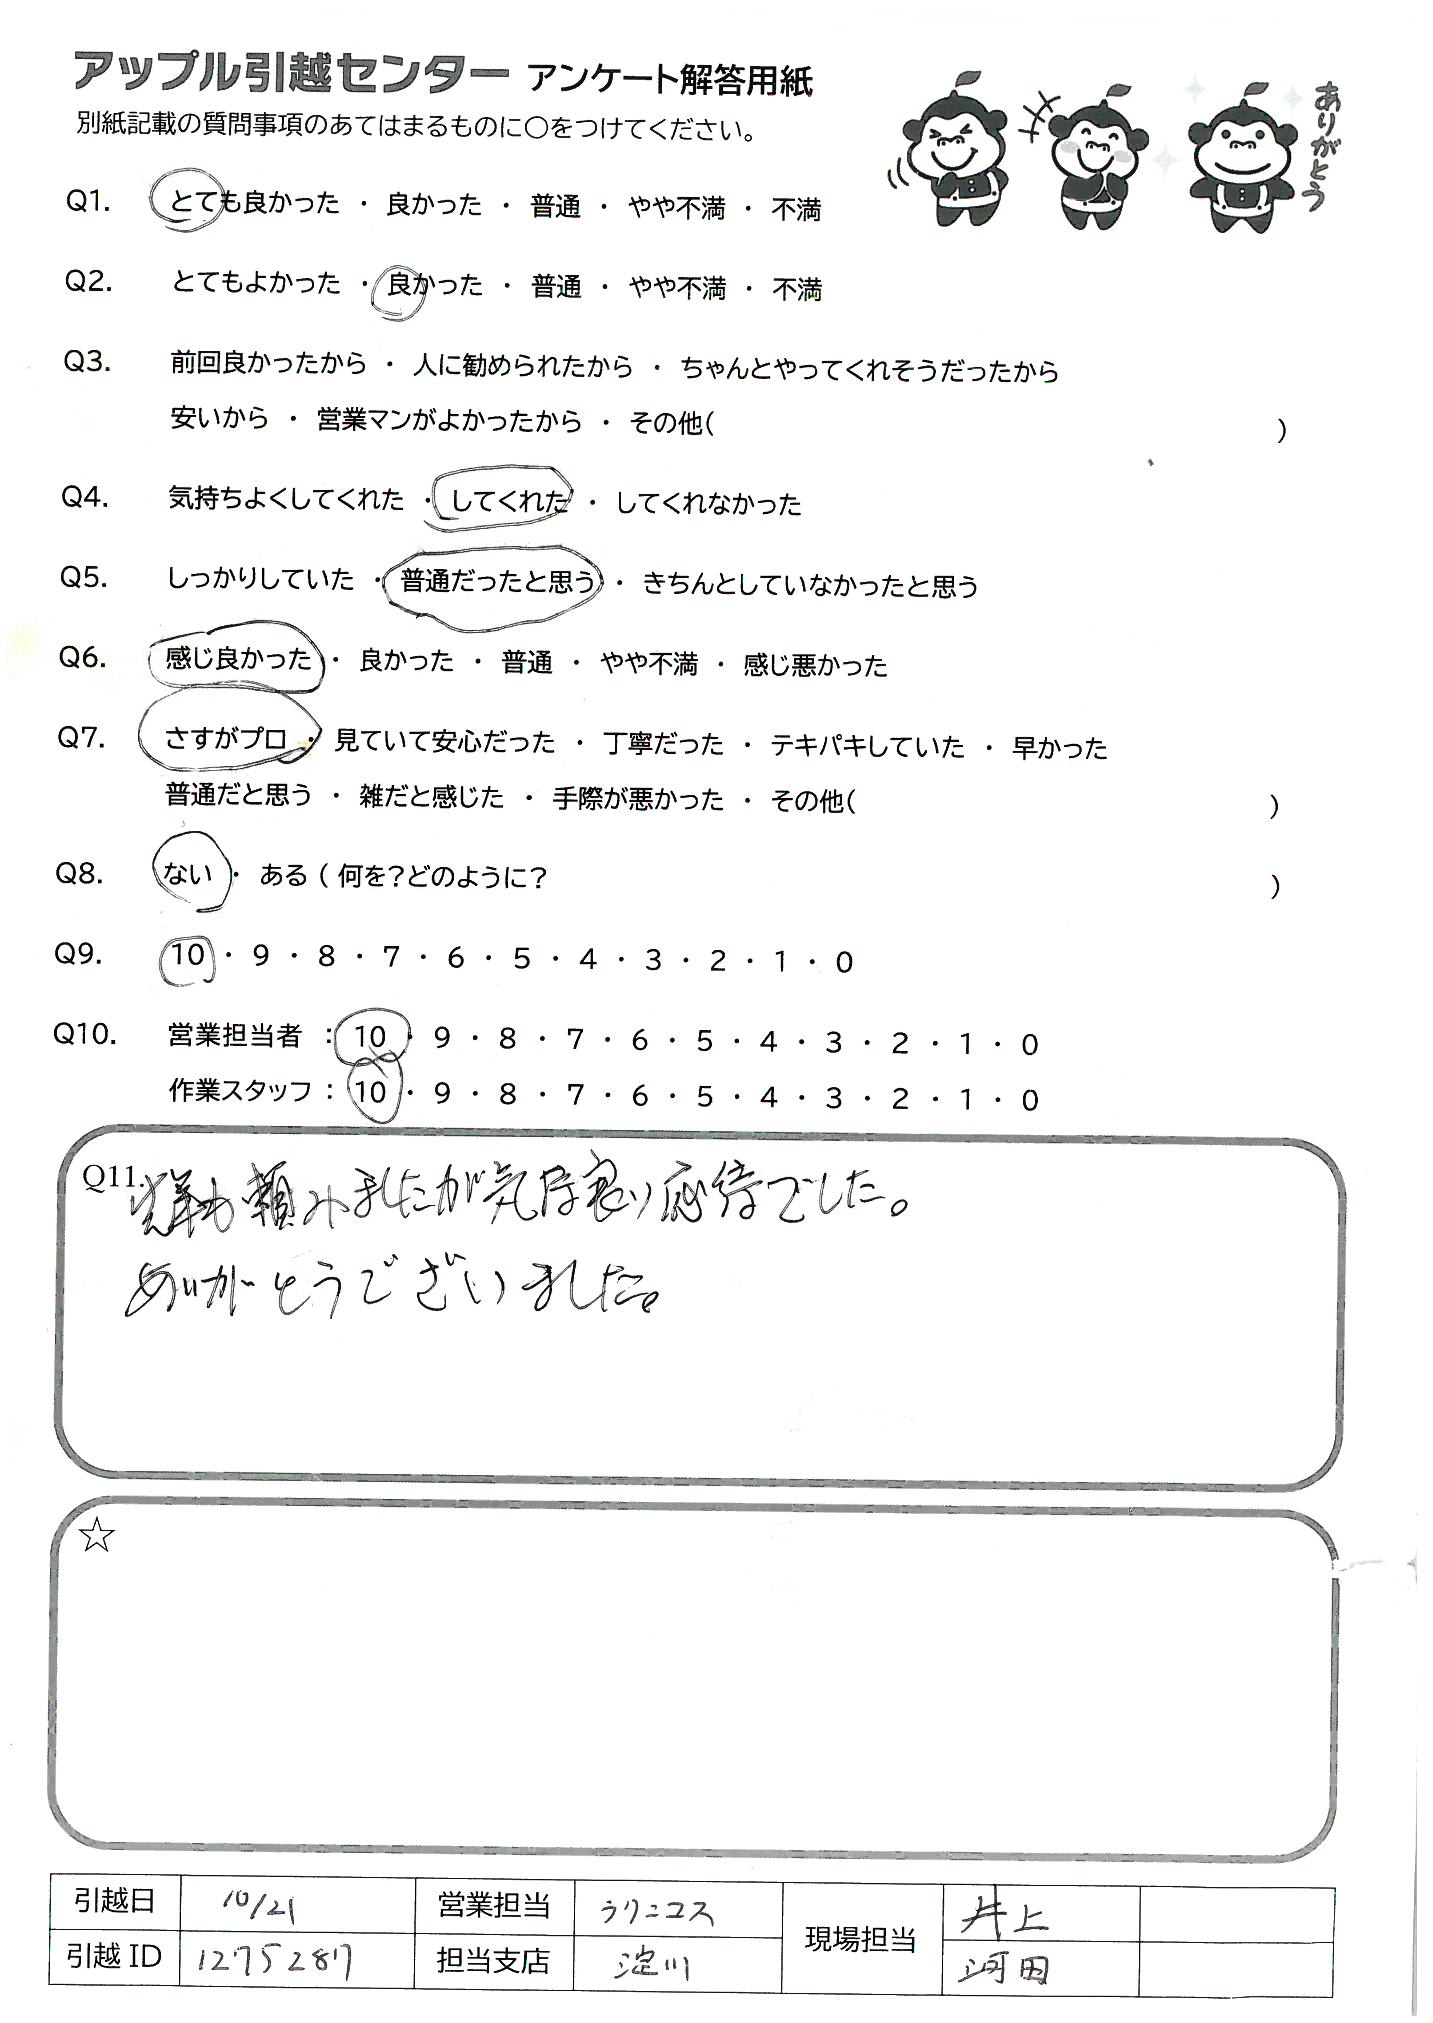 アップル引越センター アンケート解答用紙
別紙記載の質問事項のあてはまるものに○をつけてください。
ありがとう
Q1. とても良かった ・ 良かった ・ 普通 ・ やや不満 ・ 不満
Q2. とてもよかった ・ 良かった ・ 普通 ・ やや不満 ・ 不満
Q3. 前回良かったから ・ 人に勧められたから ・ ちゃんとやってくれそうだったから
安いから ・ 営業マンがよかったから ・ その他( )
Q4. 気持ちよくしてくれた ・ してくれた ・ してくれなかった
Q5. しっかりしていた ・ 普通だったと思う ・ きちんとしていなかったと思う
Q6. 感じ良かった ・ 良かった ・ 普通 ・ やや不満 ・ 感じ悪かった
Q7. さすがプロ ・ 見ていて安心だった ・ 丁寧だった ・ テキパキしていた ・ 早かった
普通だと思う ・ 雑だと感じた ・ 手際が悪かった ・ その他( )
Q8. ない ・ ある ( 何を?どのように? )
Q9. 10 ・ 9 ・ 8 ・ 7 ・ 6 ・ 5 ・ 4 ・ 3 ・ 2 ・ 1 ・ 0
Q10. 営業担当者 : 10 ・ 9 ・ 8 ・ 7 ・ 6 ・ 5 ・ 4 ・ 3 ・ 2 ・ 1 ・ 0
作業スタッフ : 10 ・ 9 ・ 8 ・ 7 ・ 6 ・ 5 ・ 4 ・ 3 ・ 2 ・ 1 ・ 0
Q11. も頼みましたが気持良い応待でした。
ありがとうございました。
☆
引越日 10/21 営業担当 ラリニコス 現場担当 井上
引越 ID 1275287 担当支店 淀川 河田